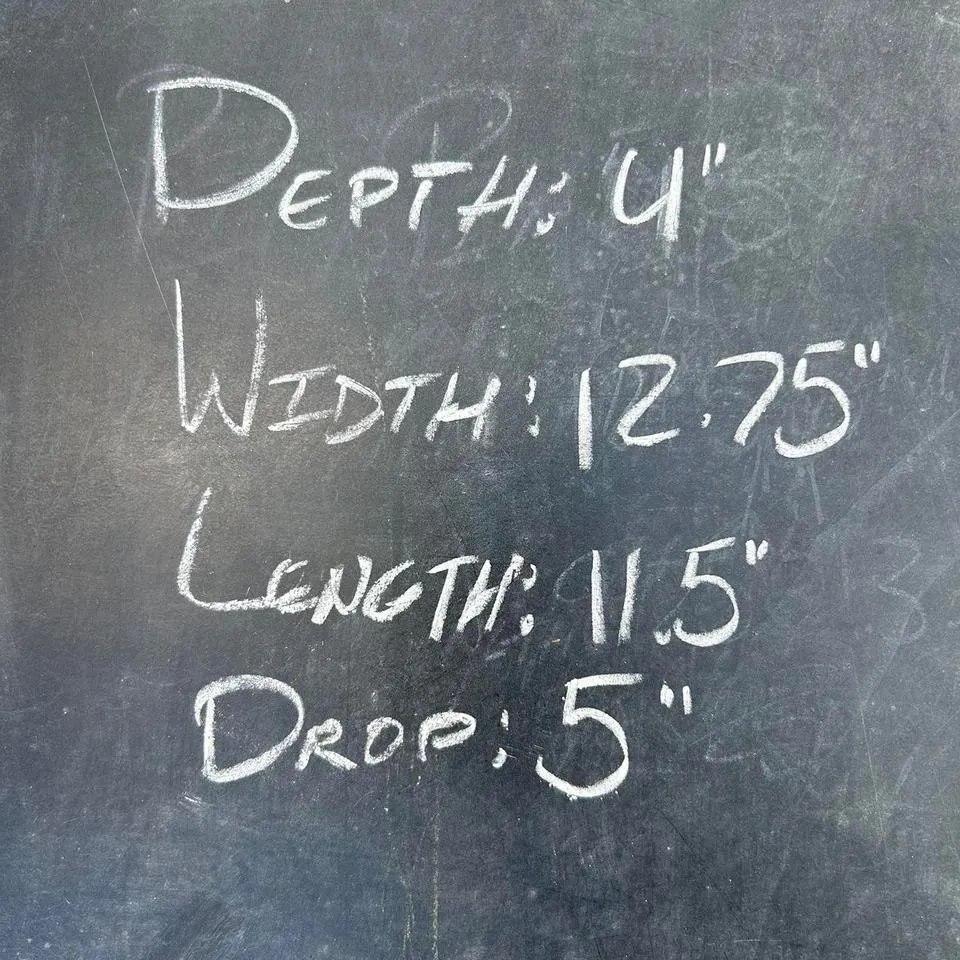 DEPTH: 4"
WIDTH: 12.75"
LENGTH: 11.5"
DROP: 5"